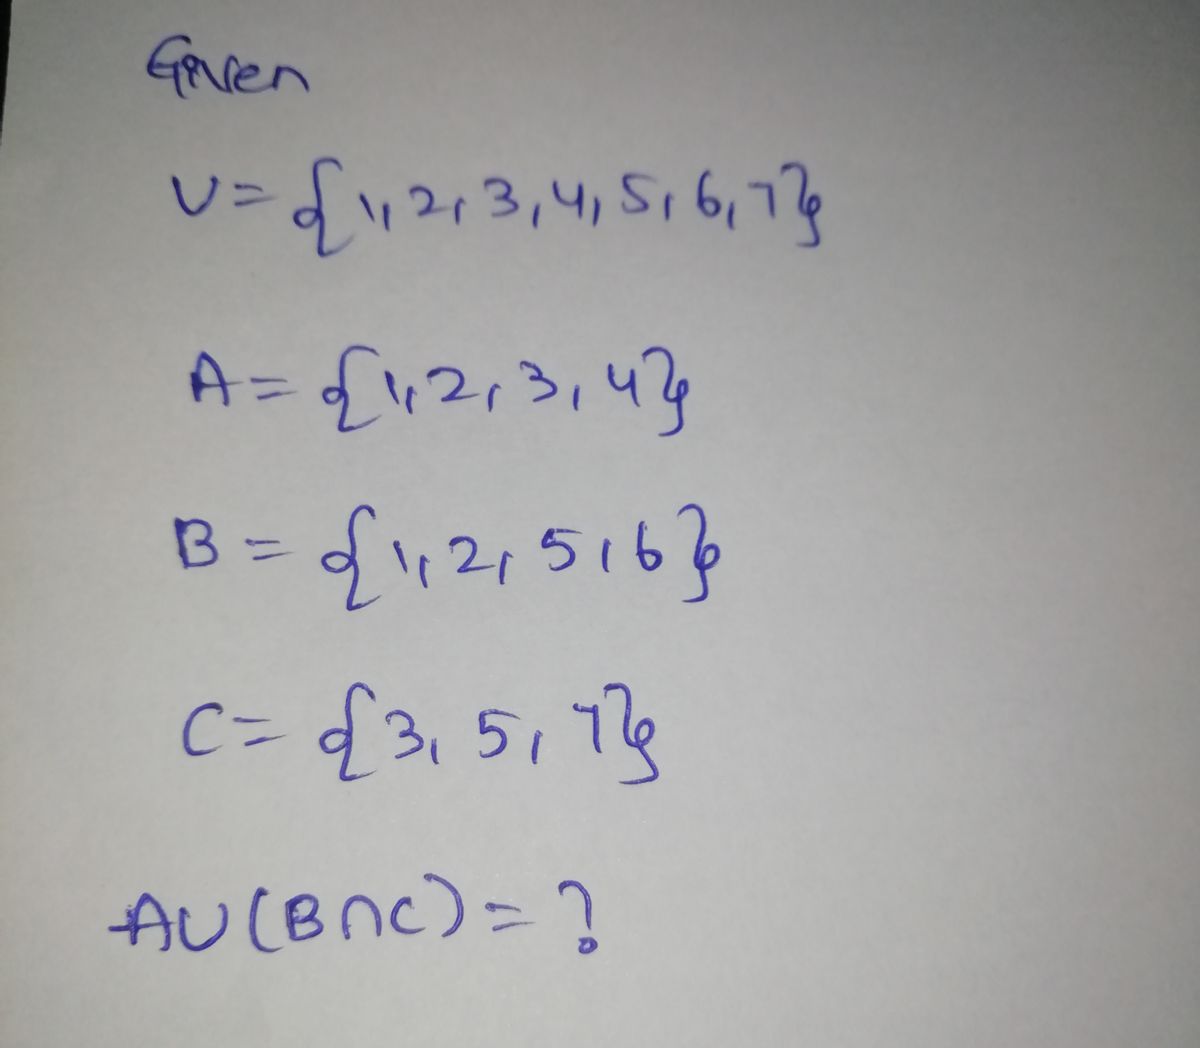 Given
U = {1, 2, 3, 4, 5, 6, 7}
A = {1, 2, 3, 4}
B = {1, 2, 5, 6}
C = {3, 5, 7}
A∪(B∩C) = ?